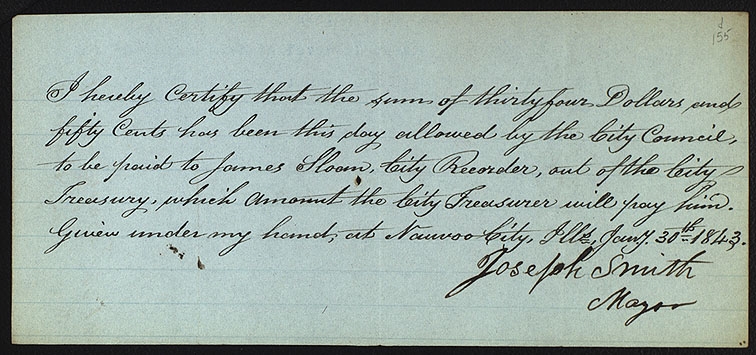 d
155
I hereby Certify that the sum of thirty four Dollars and
fifty Cents has been this day allowed by the City Council,
to be paid to James Sloan, City Recorder, out of the City
Treasury, which amount the City Treasurer will pay him.
Given under my hand, at Nauvoo City, Ills, Jany. 30th 1843.
Joseph Smith
Mayor